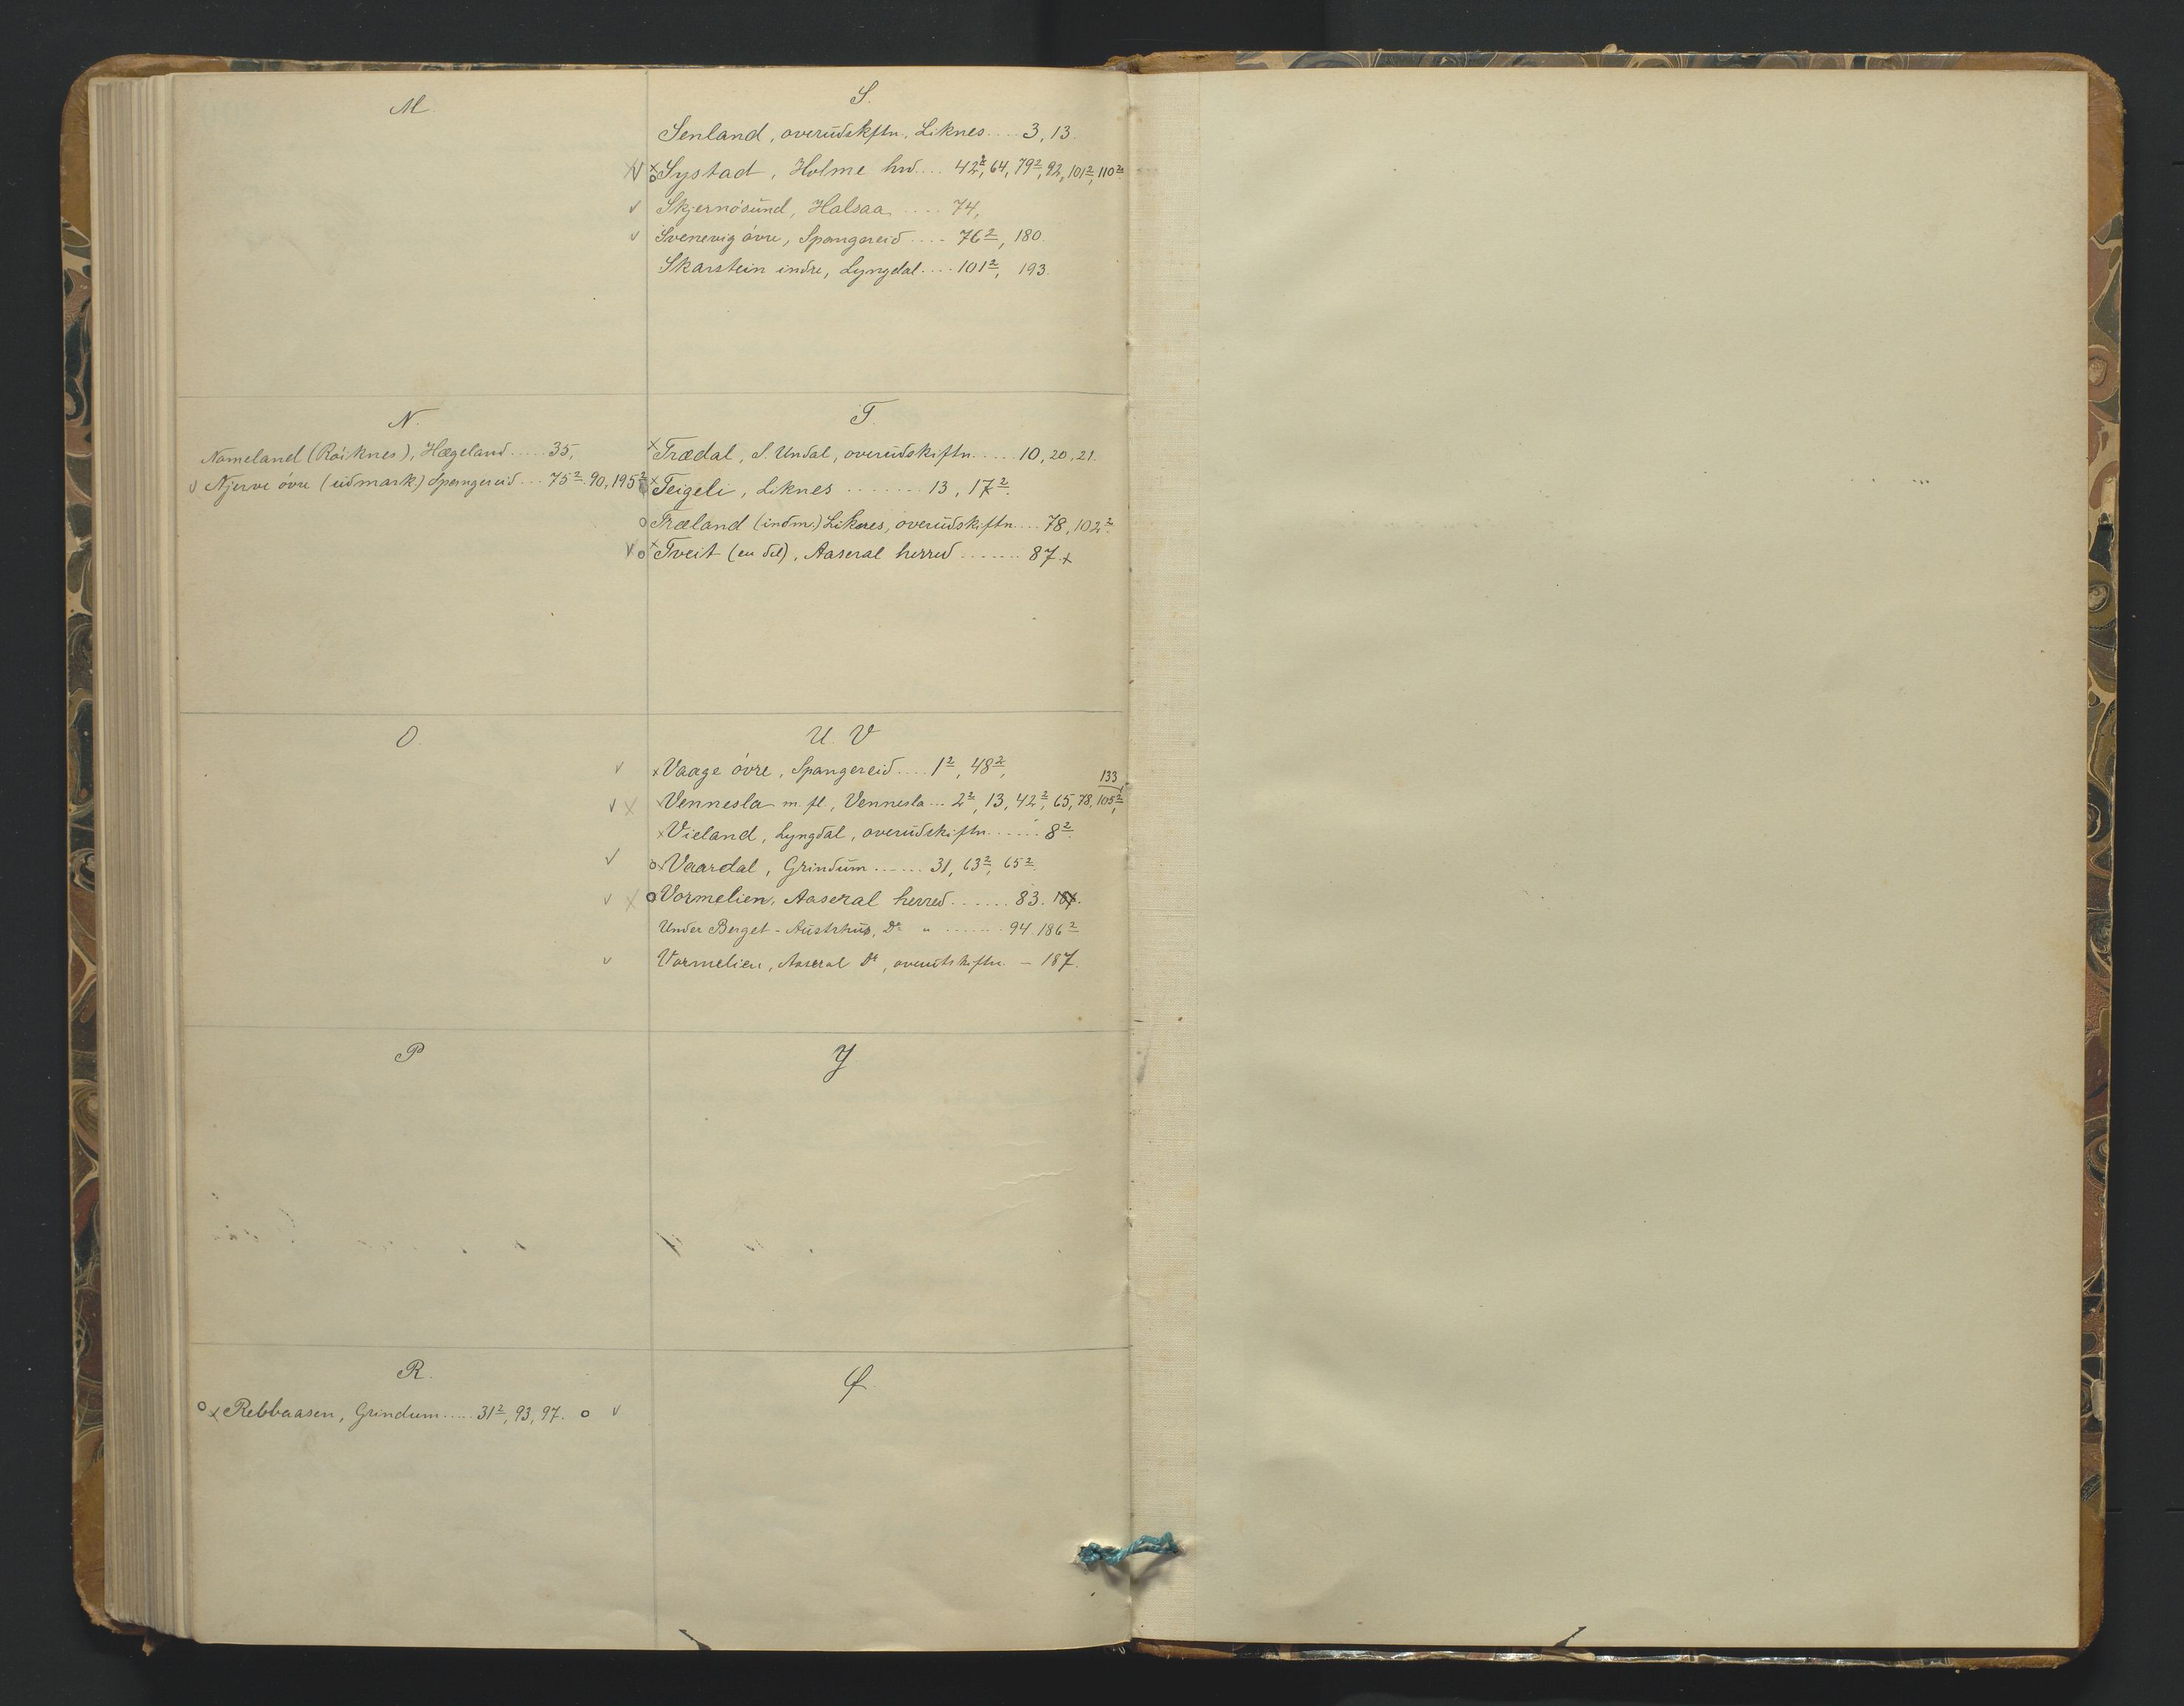 M
N.
Nameland (Röiknes), Hægeland ..... 35,
v Njerve övre (udmark) Spangereid ... 75², 90, 195²
O.
P
R.
o x Rebbaasen, Grindum ..... 31², 93, 97. o v
S.
Senland, overudskftn., Liknes .... 3, 13.
x v x o Systad, Holme hrd .... 42², 64, 79², 92, 101², 110²
v Skjernösund, Halsaa ..... 74,
v Svenevig övre, Spangereid .... 76², 180.
Skarstein indre, Lyngdal .... 101², 193.
T.
x Trædal, S. Undal, overudskiftn. ..... 10, 20, 21.
x Teigeli, Liknes ....... 13, 17².
o Træland (indm.) Liknes, overudskiftn. ... 78, 102².
v o x Tveit (en del), Aaseral herred ....... 87. x
U. V
v x Vaage övre, Spangereid .... 1², 48²,
133
v x x Vennesla m. fl., Vennesla ... 2², 13, 42², 65, 78, 105²,
x Vieland, Lyngdal, overudskiftn. ..... 8².
v o x Vaardal, Grindum ...... 31, 63², 65²
v x o Vormelien, Aaseral herred ...... 83. 187.
Under Berget - Austrhus, Do " ....... 94. 186²
v Vormelien, Aaseral Do, overutskiftn. - 187.
Y
Ø